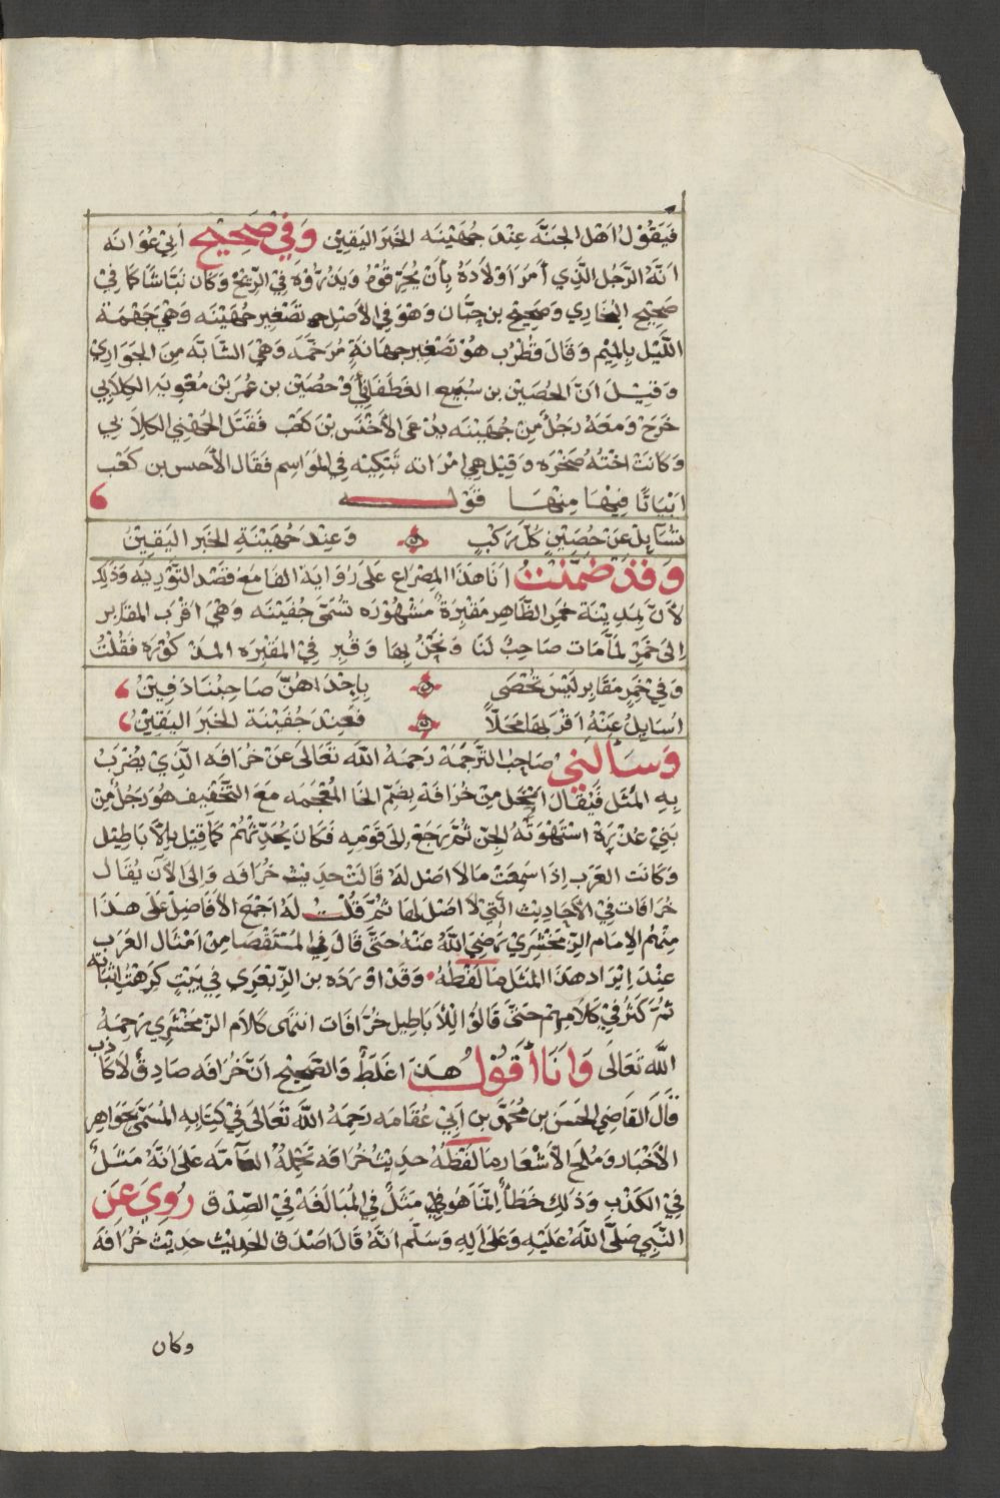 فَيَقُوْلُ اَهْلُ الجَنَّه عِنْدَ جُهَيْنَه الخَبَرُ اليَقِيْن وَفِيْ صَحِيْحِ اَبِيْ عُوَانَه
اَنَّهُ الرَّجُل الَّذِي أَمَرَ اَوْلَادَهُ بِأَنْ يُحَرِّقُوْهُ وَيَذُرُّوْهُ فِيْ الرِّيْحِ وَكَان نَبَّاشًا كَمَا فِيْ
صَحِيْحِ البُخَارِي وَصَحِيْحِ بن حِبَّان وَهُوَ فِي الأَصْلِ تَصْغِير جُهَيْنَه وَهْيَ جَهْمَة
اللَّيْل بِالمِيْمِ وَقَالَ قُطْرُب هُوَ تَصْغِير جهَانَةٍ مُرَخَّمَه وَهْيَ الشَّابَّه مِنَ الجَوَارِيْ
وَقِيْلَ اَنَّ الحُصَيْن بن سُبَيع الغَطَفَانِيْ وَحُصَيْن بن عُمَر بْن مُعٰوِيَه الكِلَابِي
خَرَجَ وَمَعَهُ رَجُلٌ مِنْ جُهَيْنَه يُدْعَى الأَخْنَس بْنَ كَعْب فَقَتَلَ الجُهَنِي الكِلَابِي
وَكَانَتْ اخْتُهُ صَخْرَه وَقِيْلَ هِيَ امْرَاته تَبْكِيْه فِي المَوَاسِم فَقَالَ الأَخنس بن كَعْب
اَبْيَاتًا فِيْهَا مِنْهَا قَوْلـــه
تُسَايِلُ عَنْ حُصَيْنٍ كُلَّ رَكْبٍ وَعِنْدَ جُهَيْنَةِ الخَبَر اليَقِيْنُ
وَقَدْ ضَمَّنْتُ اَنَا هَذَا المِصْرَاع عَلَى رُوَايَة الفَا مَعَ قَصْد التَّوْرِيَه وَذَلِك
لأَنَّ بِمَدِيْنَة خَمِر الظَّاهِر مَقْبِرَةٌ مَشْهُوْرَه تُسَمَّى جُفَيْنَه وَهْيَ اَقْرَب المَقَابِر
اِلَى خَمِرْ لَمَّا مَات صَاحِبٌ لَنَا وَنَحْنُ بِهَا وَقُبِر فِيْ المَقْبِرَه المَذْكُوْرَه فَقُلْتُ
وَفِيْ خَمِرٍ مَقَابِر لَيْسَ تُحْصَى بِاِحْدَاهُنَّ صَاحِبُنَا دَفِيْنُ
اُسَايِلُ عَنْهُ اَقْرَبَهَا مَحَلًّا فَعِنْدَ جُفَيْنَة الخَبَرُ اليَقِيْنُ
وَسَأَلَنِيْ صَاحِبُ التَّرْجَمَة رَحِمَهُ اللّٰه تَعَالَى عَنْ خُرَافَه الَّذِيْ يُضْرَبُ
بِهِ المَثَل فَيُقَالُ مِنْ خُرَافَة بِضَمِّ الخَا المُعْجَمَه مَعَ التَّخْفِيْف هُوَ رَجُلٌ مِنْ
بَنِيْ عُذْرَة اسْتَهْوَتْهُ الجِنّ ثُمَّ رَجَعَ اِلَى قَوْمِه فَكَان يُحَدِّثُهُمْ كَمَا قِيْلَ بِالأَبَاطِيْل
وَكَانَتِ العَرَب اِذَا سَمِعَتْ مَالَا اَصْل لَهُ قَالَتْ حَدِيْث خُرَافَه وَاِلَى الآنَ يُقَالُ
خُرَافَات فِيْ الأَحَادِيْث الَّتِيْ لَا اَصْلَ لَهَا ثُمَّ قُلْتُ لَهُ اجْمَعَ الأَفَاضِل عَلَى هَذَا
مِنْهُم الاِمَام الزَّمَخْشَرِيْ رَضِيَ اللّٰهُ عَنْهُ حَتَّى قَالَ فِي المُسْتَقْصَا مِنْ اَمْثَال العَرَب
عِنْدَ اِيْرَاد هَذَا المَثَل مَا لَفْظُهُ وَقَدْ اَوْرَدَه بن الزِّبَعْرَى فِي بَيْتٍ كَرِهْتُ اِثْبَاتَه
ثُمَّ كَثُرَ فِيْ كَلَامِهِمْ حَتَّى قَالُوْا لِلأَبَاطِيْل خُرَافَات انْتَهَى كَلَام الزَّمَخْشَرِي رَحِمَهُ
اللّٰه تَعَالَى وَاَنَا أَقُوْلُ هَذَا غَلَطٌ وَالصَّحِيْح اَنَّ خُرَافَه صَادِقٌ لَا كَاذِب
قَالَ القَاضِي الحَسَن بن مُحَمَّد بن اَبِيْ عُقَامَه رَحِمَهُ اللّٰه تَعَالَى فِيْ كِتَابِه المُسَمَّى جَوَاهِر
الأَخْبَار وَمُلَح الأَشْعَار مَا لَفْظُهُ حَدِيْثُ خُرَافَه تَحْمِلُهُ العَآمَّه عَلَى اَنَّهُ مَثَلٌ
فِيْ الكَذْبِ وَذَلِكَ خَطَأٌ اِنَّمَا هُوَ مَثَلٌ فِي المُبَالَغَة فِيْ الصِّدْق رُوِيَ عَنِ
النَّبِي صَلَّى اللّٰهُ عَلَيْهِ وَعَلَى اٰلِهِ وَسَلَّم اَنَّهُ قَالَ اَصْدَق الحَدِيْث حَدِيْث خُرَافَه
وكان